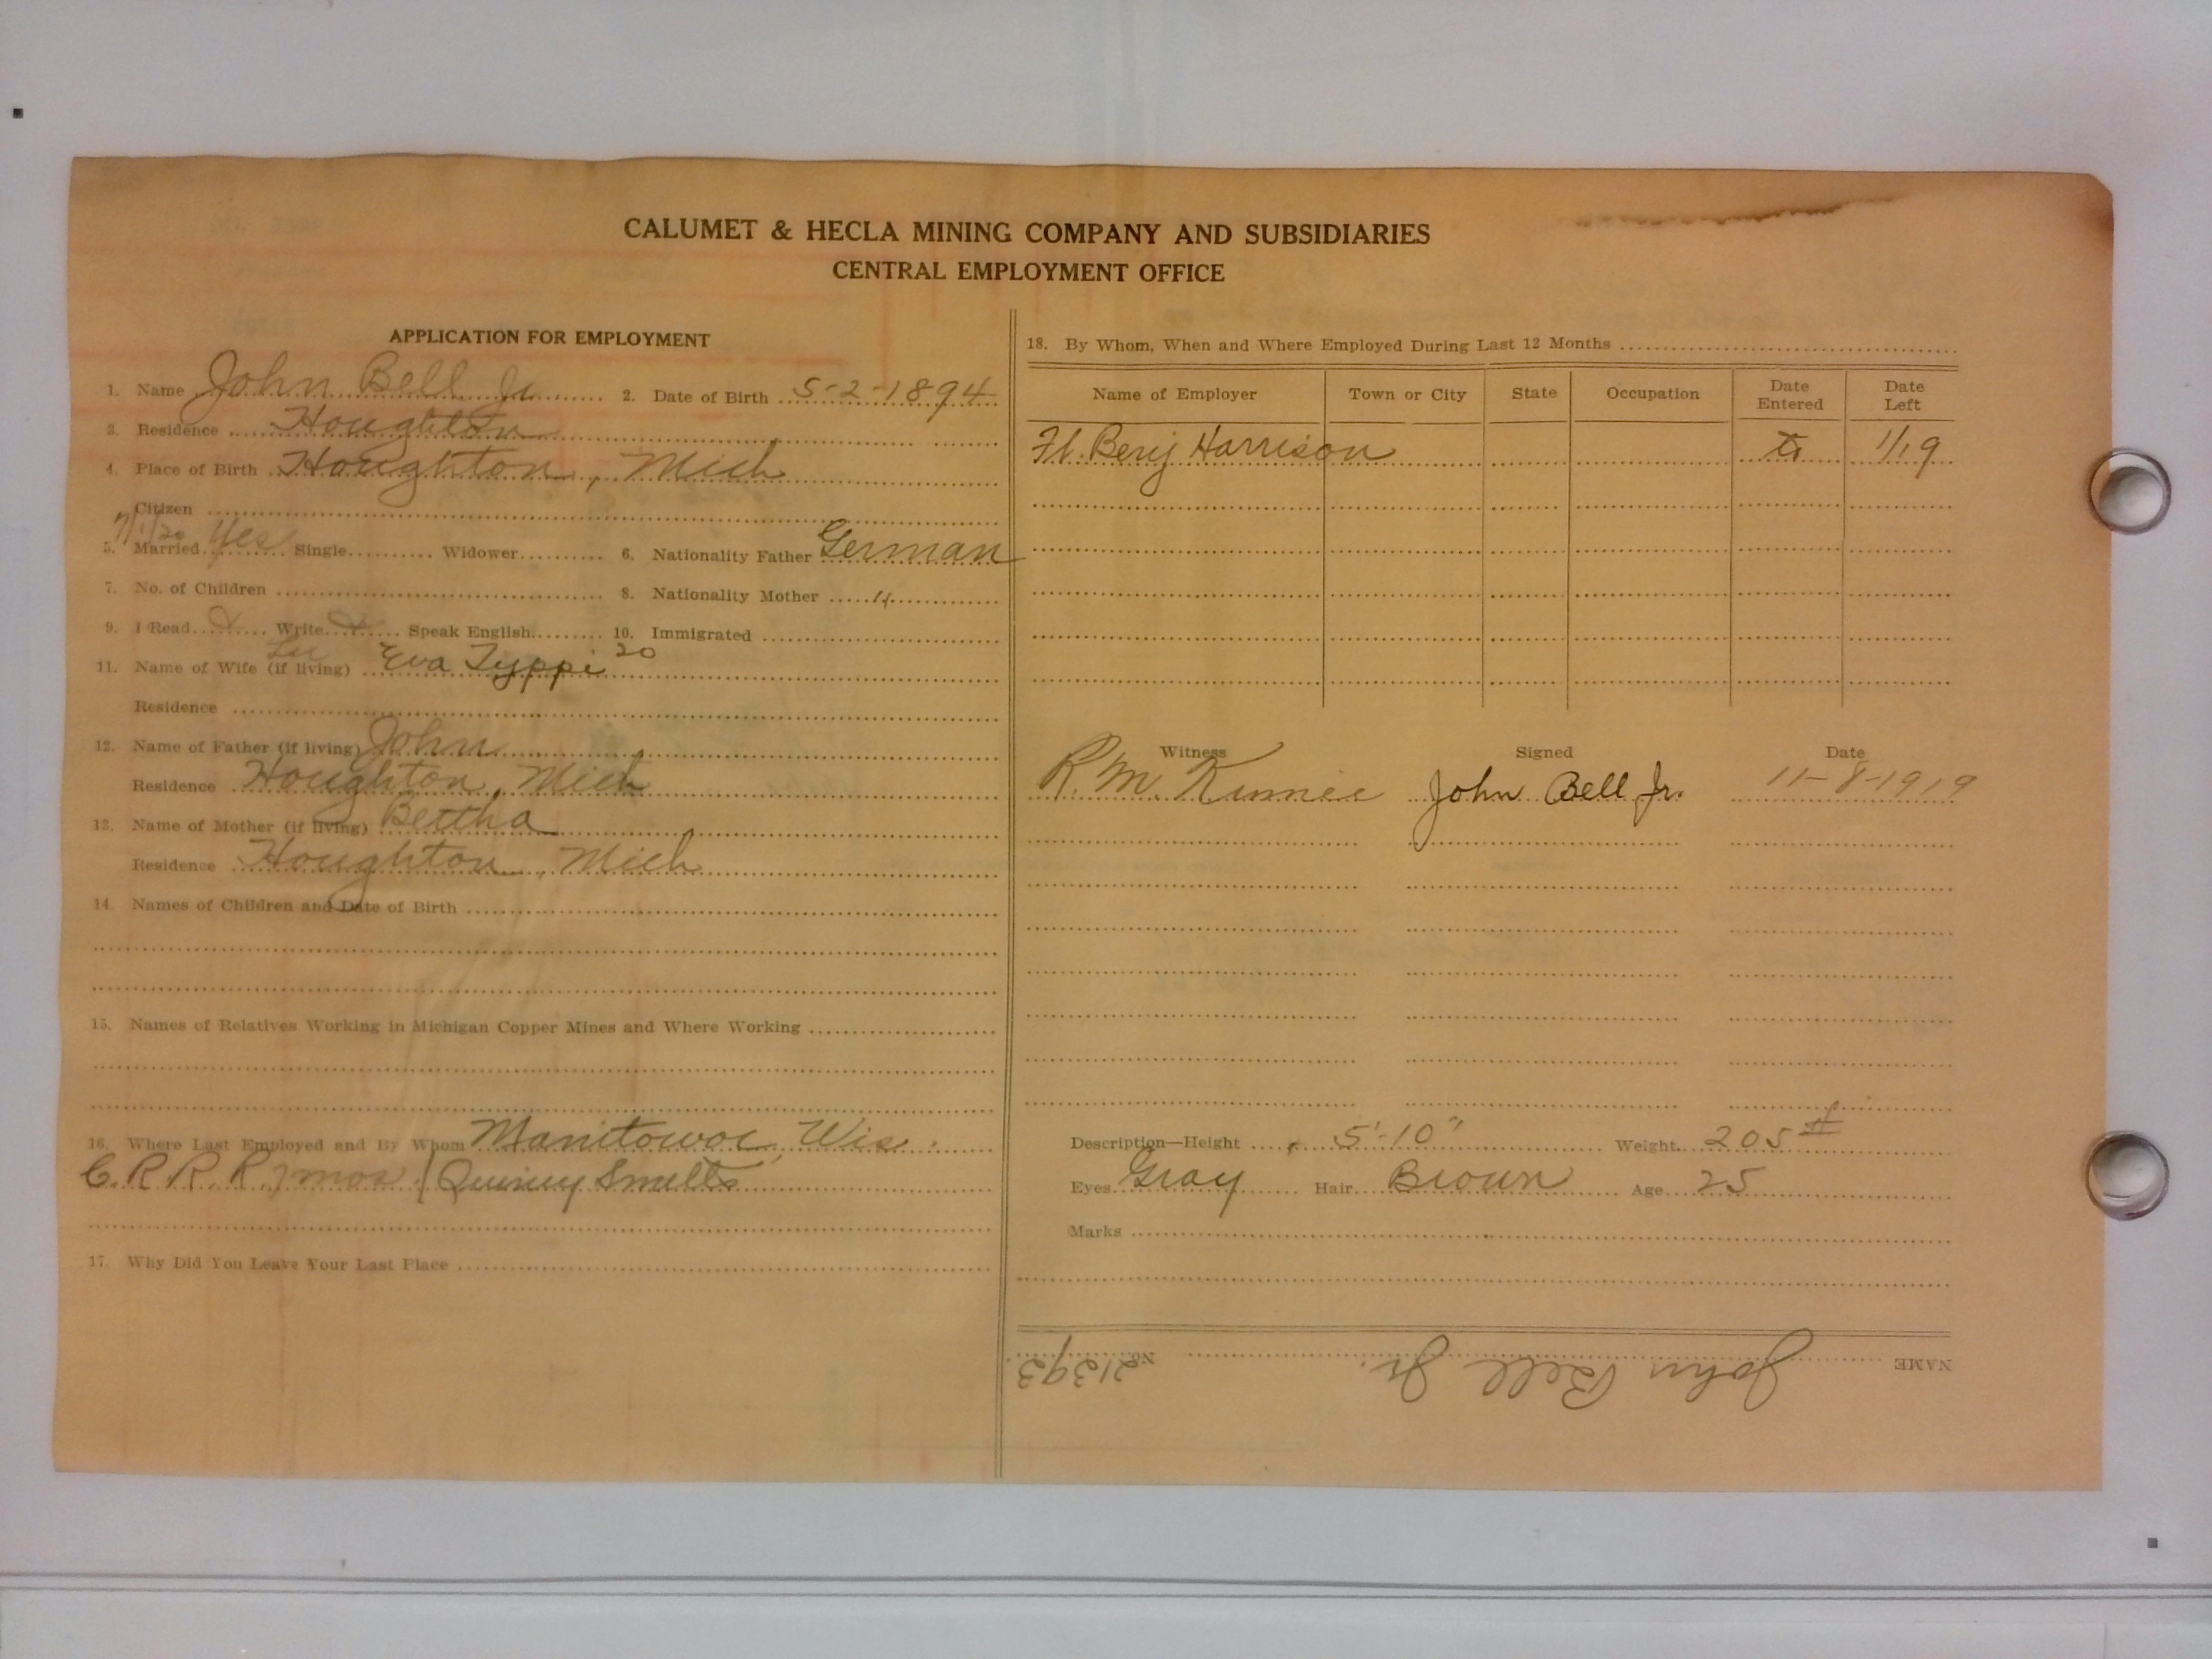 CALUMET & HECLA MINING COMPANY AND SUBSIDIARIES
CENTRAL EMPLOYMENT OFFICE
APPLICATION FOR EMPLOYMENT
1. Name John Bell Jr 2. Date of Birth 5-2-1894
3. Residence Houghton
4. Place of Birth Houghton, Mich
Citizen
7/1/20
5. Married Yes Single Widower 6. Nationality Father German
7. No. of Children 8. Nationality Mother "
9. I Read X Write X Speak English 10. Immigrated
11. Name of Wife (if living) Eva Typpi 20
Residence
12. Name of Father (if living) John
Residence Houghton, Mich
13. Name of Mother (if living) Bertha
Residence Houghton, Mich
14. Names of Children and Date of Birth
15. Names of Relatives Working in Michigan Copper Mines and Where Working
16. Where Last Employed and By Whom Manitowoc, Wis.
C. R R. R. 7 mos / Quincy
17. Why Did You Leave Your Last Place
18. By Whom, When and Where Employed During Last 12 Months
Name of Employer Town or City State Occupation Date Entered Date Left
Ft. Benj Harrison to 1/19
Witness Signed Date
R. M. John Bell Jr. 11-8-1919
Description—Height 5'-10" Weight 205 #
Eyes Gray Hair Brown Age 25
Marks
NAME John Bell Jr. No. 21393